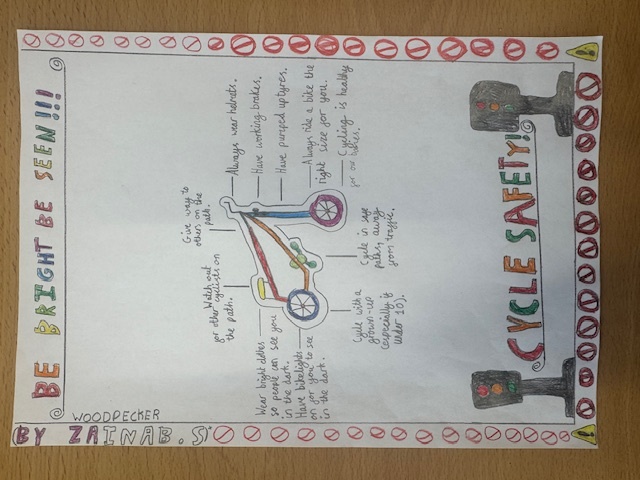 BE BRIGHT BE SEEN!!!
WOODPECKER
BY ZAINAB.S
Watch out
for other cyclists on
the path.
Give way to
others on the
path.
Always wear helmets.
Have working brakes.
Have pumped up tyres.
Always ride a bike the
right size for you.
Cycling is healthy
for our bodies.
Wear bright clothes
so people can see you
in the dark.
Have bikelights
on for you to see
in the dark.
Cycle with a
grown-up
(especially if
under 10).
Cycle in safe
paths, away
from traffic.
CYCLE SAFETY!